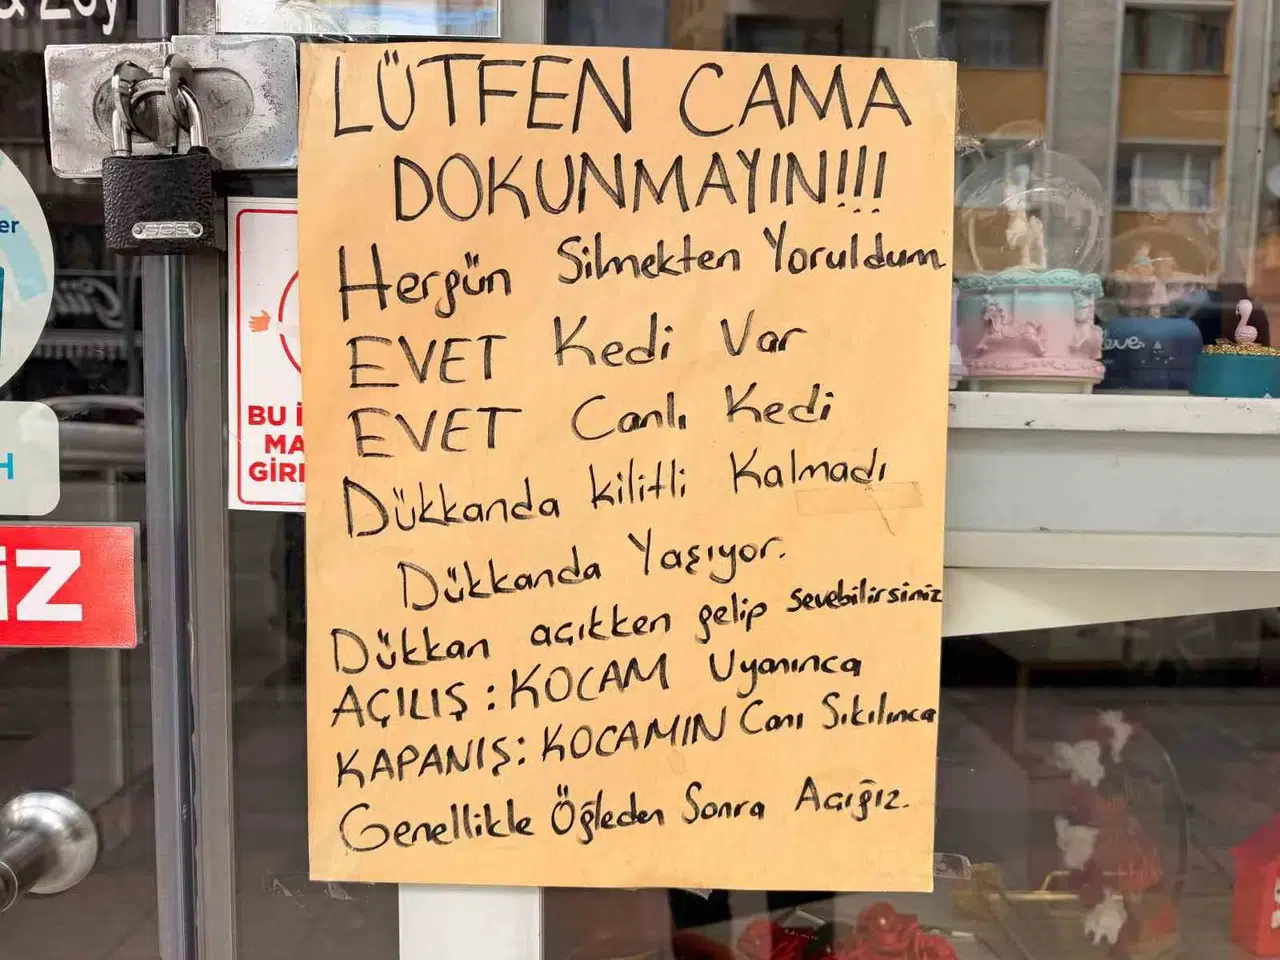 & Zoy
LÜTFEN CAMA
DOKUNMAYIN!!!
Hergün Silmekten Yoruldum
EVET Kedi Var
EVET Canlı Kedi
Dükkanda kilitli Kalmadı
Dükkanda Yaşıyor.
Dükkan açıkken gelip sevebilirsiniz
AÇILIŞ : KOCAM Uyanınca
KAPANIŞ : KOCAMIN Canı Sıkılınca
Genellikle Öğleden Sonra Açığız.
BU İ
MA
GİRİ
er
H
İZ
Love